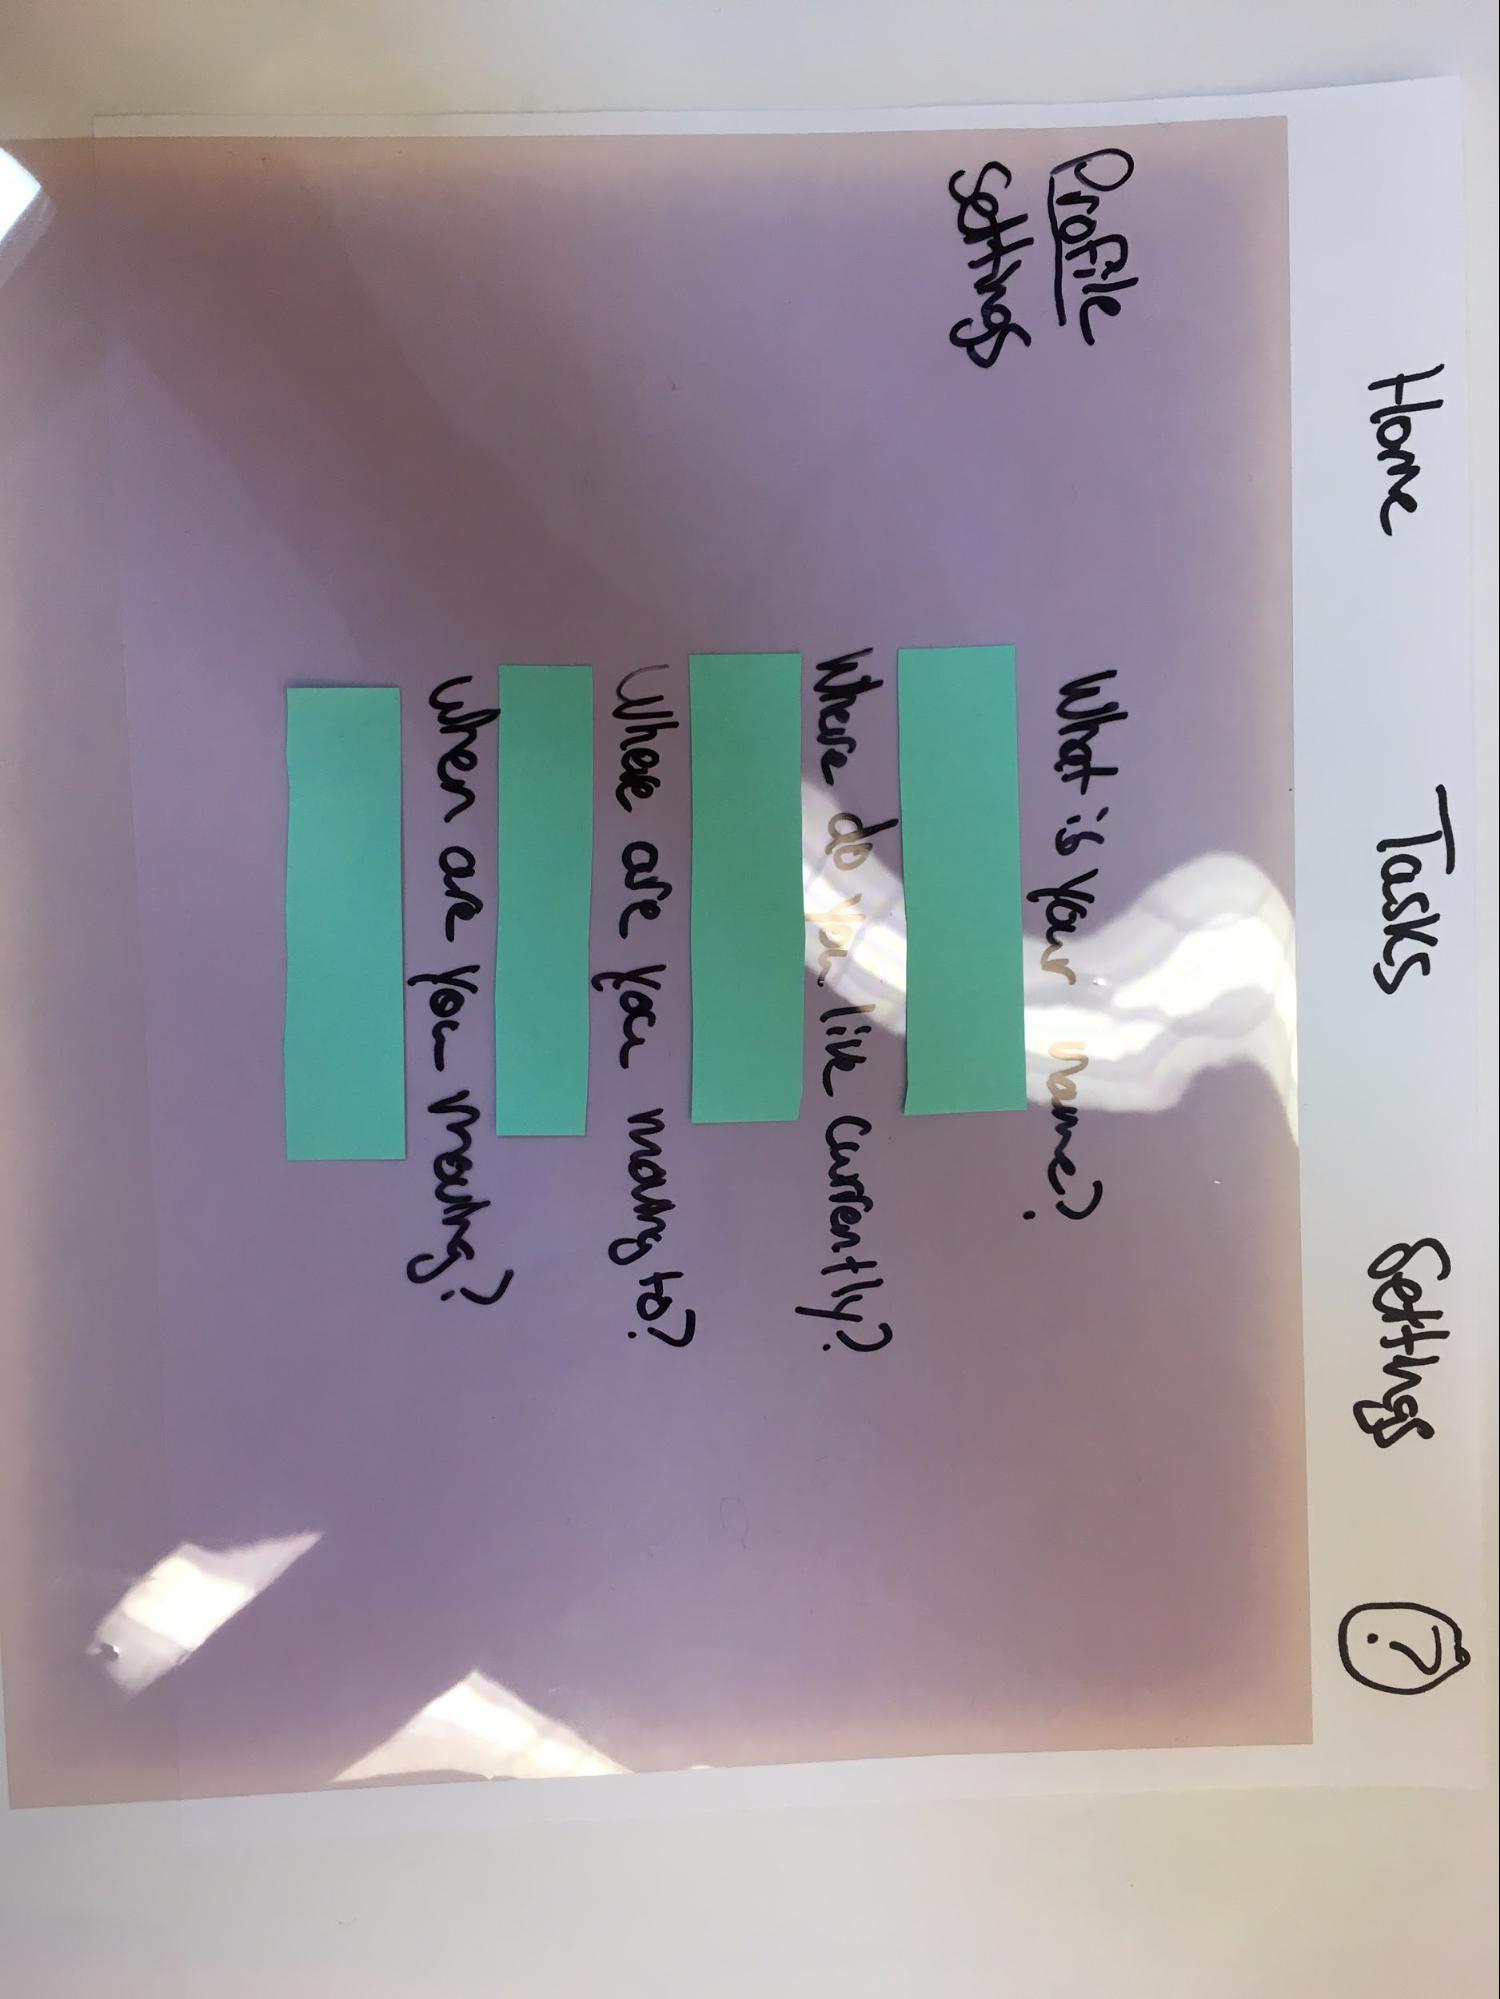 Home Tasks Settings ?
Profile
settings
What is your name?
Where do you live currently?
Where are you moving to?
When are you moving?